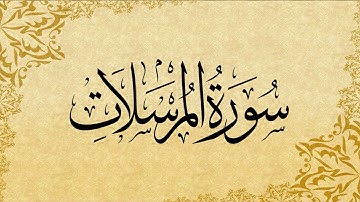 سُورَةُ الْمُرْسَلَاتِ